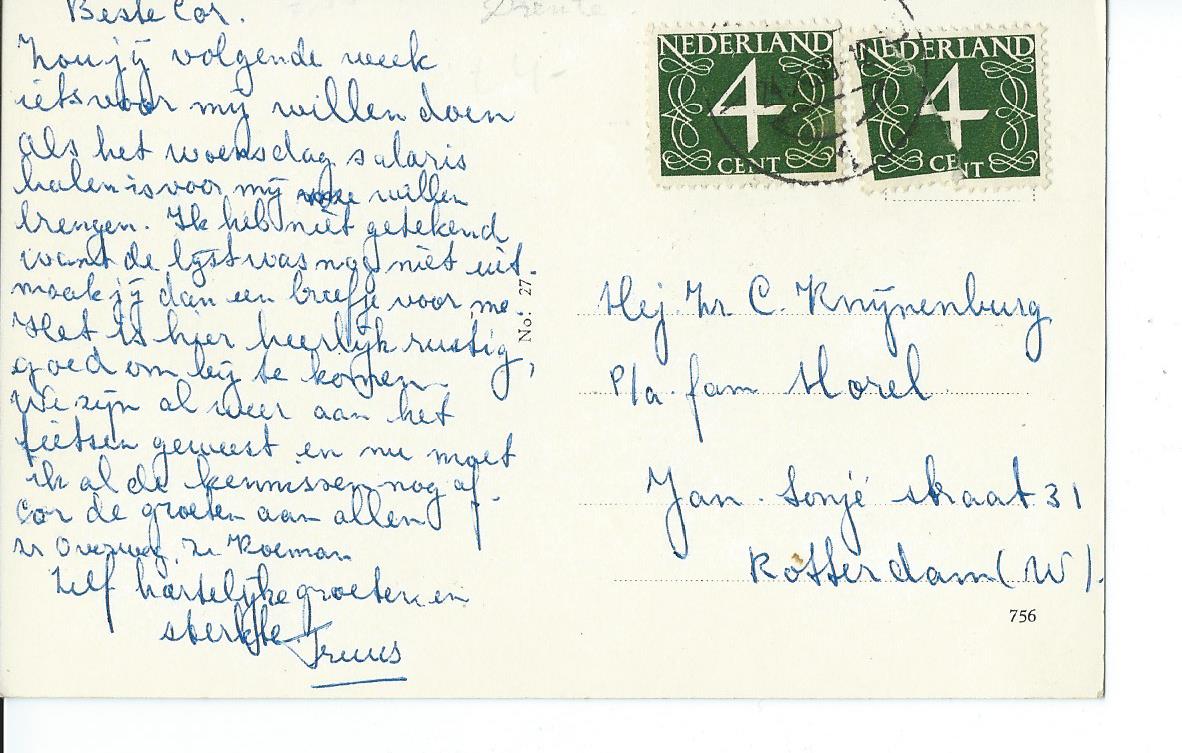 Beste Cor.
Zou jÿ volgende week
iets voor mÿ willen doen
Als het woensdag salaris
halen is voor mÿ willen
brengen. Ik heb niet getekend
want de lÿst was nog niet uit.
maak jÿ dan een briefje voor me.
Het is hier heerlÿk rustig,
goed om bÿ te komen
We zÿn al weer aan het
fietsen geweest en nu moet
ik al de kennissen nog af.
Cor de groeten aan allen
zr Overweg, Zr Koeman
Zelf hartelÿke groeten en
sterkte. Truus
Drente.
NEDERLAND
4
CENT
NEDERLAND
4
CENT
No. 27
Mej. Zr C. Knÿnenburg
P/a. fam Morel
Jan. Sonjé straat 31
Rotterdam (W).
756